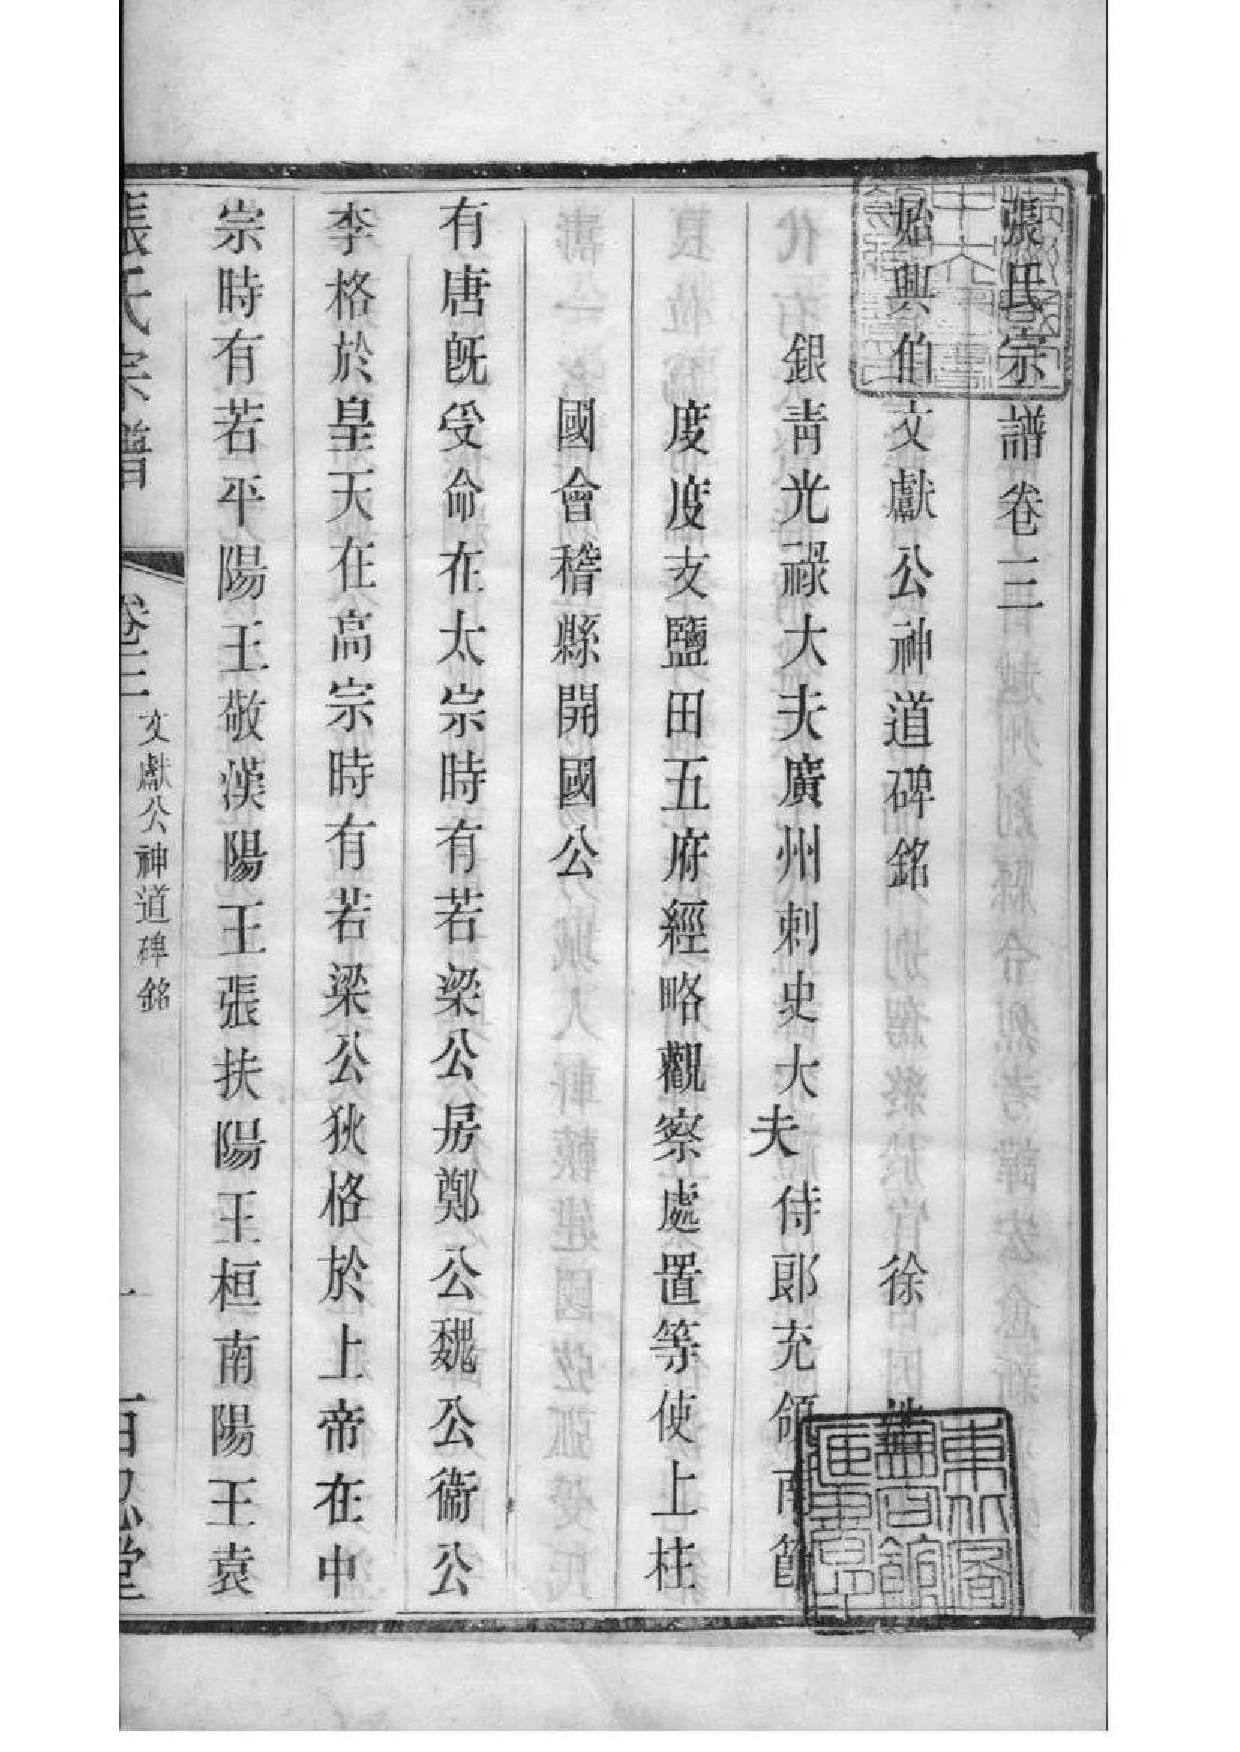 張氏宗譜卷三
始興伯文獻公神道碑銘 徐
銀青光祿大夫廣州刺史大夫侍郎充領南節
度度支鹽田五府經略觀察處置等使上柱
國會稽縣開國公
有唐旣受命在太宗時有若梁公房鄭公魏公衞公
李格於皇天在高宗時有若梁公狄格於上帝在中
宗時有若平陽王敬漢陽王張扶陽王桓南陽王袁
張氏宗譜 卷三 文獻公神道碑銘 一 百忍堂